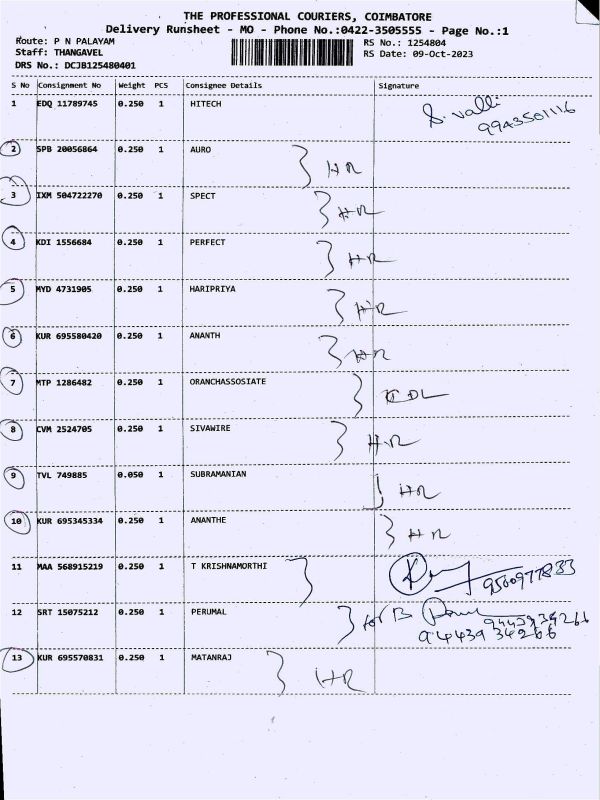 THE PROFESSIONAL COURIERS, COIMBATORE
Delivery Runsheet - MO - Phone No.:0422-3505555 - Page No.:1
Route: P N PALAYAM
RS No.: 1254804
Staff: THANGAVEL
RS Date: 09-Oct-2023
DRS No.: DCJB125480401
S No Consignment No Weight PCS Consignee Details Signature
1 EDQ 11789745 0.250 1 HITECH S. Valli
9943501116
2 SPB 20056864 0.250 1 AURO } HR
3 IXM 504722270 0.250 1 SPECT } HR
4 KDI 1556684 0.250 1 PERFECT } HR
5 MYD 4731905 0.250 1 HARIPRIYA } HR
6 KUR 695580420 0.250 1 ANANTH } HR
7 MTP 1286482 0.250 1 ORANCHASSOSIATE }
8 CVM 2524705 0.250 1 SIVAWIRE } HR
9 TVL 749885 0.050 1 SUBRAMANIAN } HR
10 KUR 695345334 0.250 1 ANANTHE } HR
11 MAA 568915219 0.250 1 T KRISHNAMORTHI }
12 SRT 15075212 0.250 1 PERUMAL } for B
9443934266
9443934266
13 KUR 695570831 0.250 1 MATANRAJ } HR